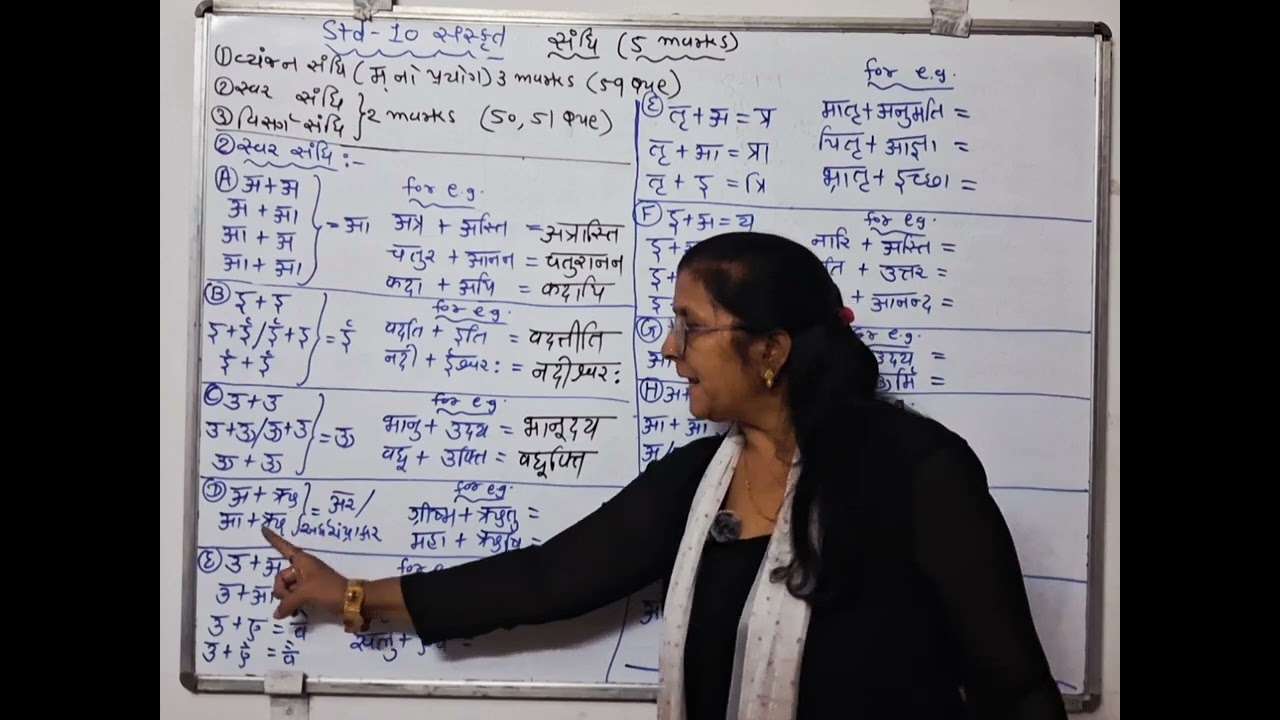 Std-10 संस्कृत संधि (5 marks)
① व्यंजन संधि (म् नो प्रयोग) 3 marks (59 que)
② स्वर संधि
③ विसर्ग संधि } 2 marks (50, 51 que)
② स्वर संधि :-
Ⓐ अ + अ
अ + आ
आ + अ
आ + आ
= आ
for e.g.
अत्र + अस्ति = अत्रास्ति
चतुर + आनन = चतुरानन
कदा + अपि = कदापि
Ⓑ इ + इ
इ + ई / ई + इ
ई + ई
= ई
for e.g.
वदति + इति = वदतीति
नदी + ईश्वर: = नदीश्वर:
Ⓒ उ + उ
उ + ऊ / ऊ + उ
ऊ + ऊ
= ऊ
for e.g.
भानु + उदय = भानूदय
वधू + उक्ति = वधूक्ति
Ⓓ अ + ऋ
आ + ऋ
= अर /
for e.g.
ग्रीष्म + ऋतु =
महा + ऋषि =
Ⓔ उ + अ
उ + आ
उ + ए = वे
उ + ऐ = वै
for e.g.
खलु +
Ⓔ तृ + अ = त्र
तृ + आ = त्रा
तृ + इ = त्रि
for e.g.
मातृ + अनुमति =
पितृ + आज्ञा =
भ्रातृ + इच्छा =
Ⓕ इ + अ = य
इ +
इ +
for eg.
नारि + अस्ति =
ति + उत्तर =
+ आनन्द =
Ⓖ
for e.g.
उदय =
ऊर्मि =
Ⓗ अ +
आ + आ
अ /